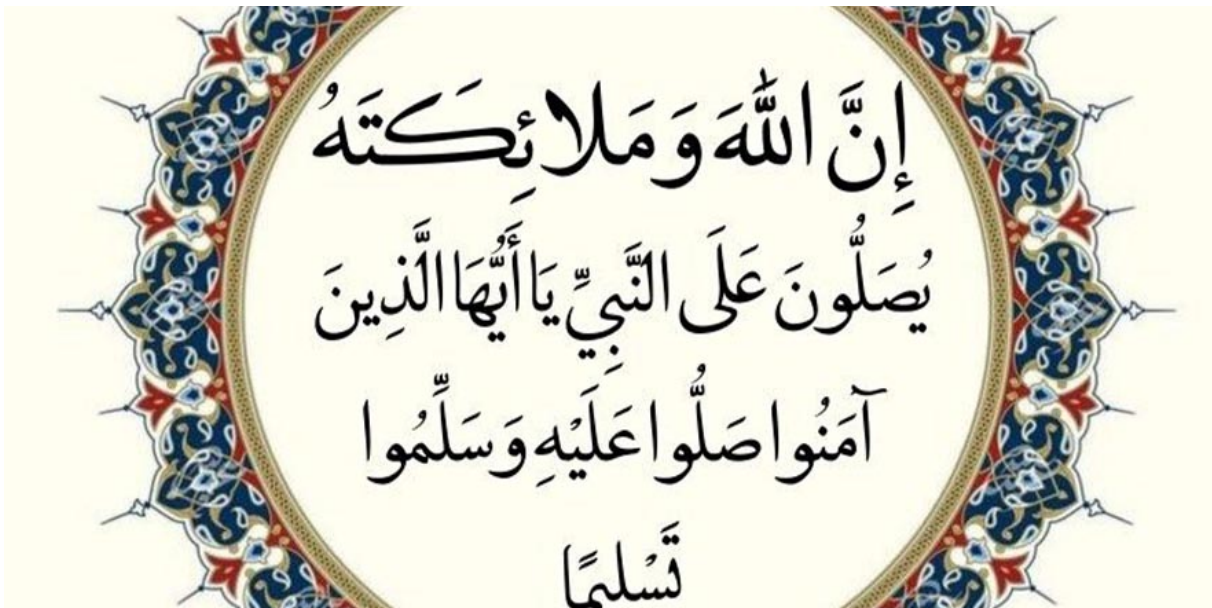 إِنَّ اللّٰهَ وَمَلائِكَتَهُ
يُصَلُّونَ عَلَى النَّبِيِّ يَا أَيُّهَا الَّذِينَ
آمَنُوا صَلُّوا عَلَيْهِ وَسَلِّمُوا
تَسْلِيمًا